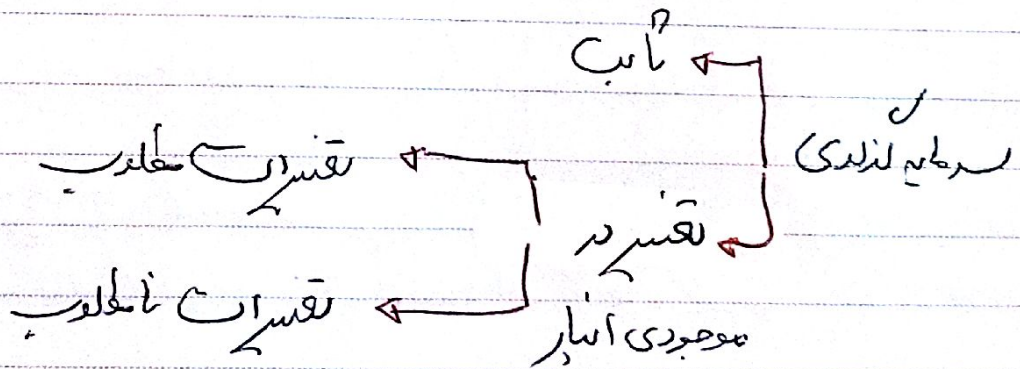 سرمایه گذاری
ثابت
تغییر در
موجودی انبار
تغییرات مطلوب
تغییرات نامطلوب